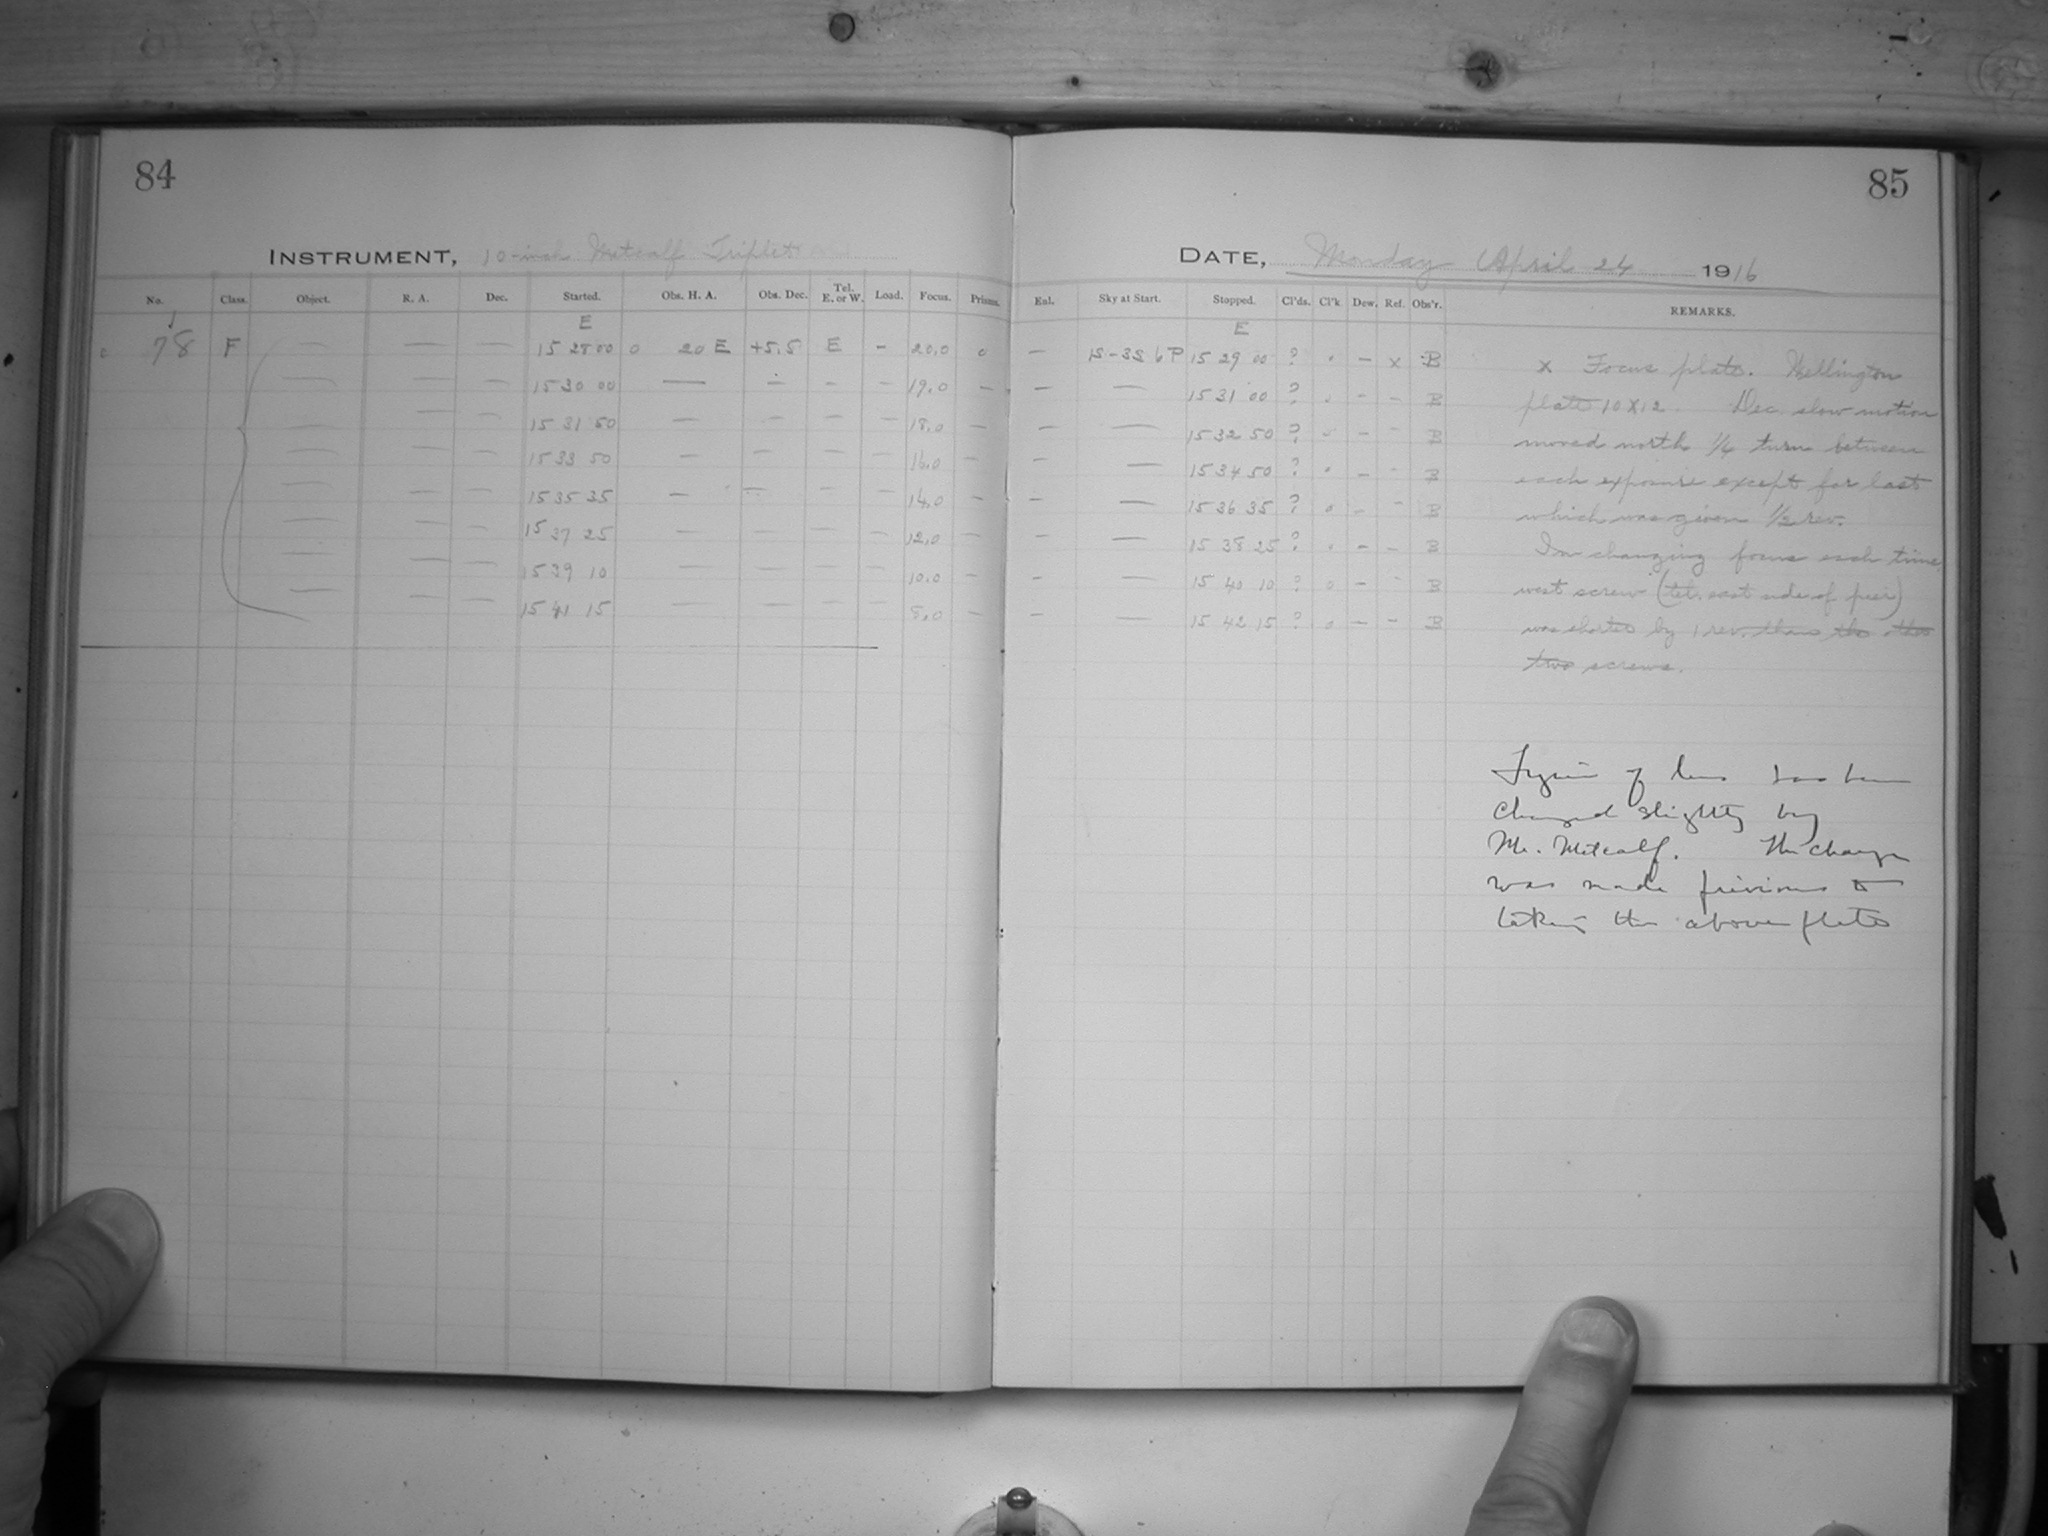 84
85
INSTRUMENT, 10-inch Metcalf Triplet
DATE, Monday April 24 1916
No. Class. Object. R. A. Dec. Started. Obs. H. A. Obs. Dec. Tel. E. or W. Load. Focus. Prisms.
Enl. Sky at Start. Stopped. Cl'ds. Cl'k Dew. Ref. Obs'r. REMARKS.
E
E
c 78 F — — — 15 28 00 0 20 E +5.5 E - 20.0 0 — 1S-3S 6P 15 29 00 ? . — x B
— — — 15 30 00 — — - — 19.0 — — — 15 31 00 ? . - - B
— — — 15 31 50 — — — — 18.0 — — — 15 32 50 ? - — - B
— — — 15 33 50 — — — — 16.0 — — — 15 34 50 ? . — - B
— — — 15 35 35 — — — — 14.0 — — — 15 36 35 ? 0 — - B
— — — 15 37 25 — — — — 12.0 — — — 15 38 25 ? . — - B
— — — 15 39 10 — — — — 10.0 — — — 15 40 10 ? 0 — - B
— — — 15 41 15 — — — — 8.0 — — — 15 42 15 ? 0 — - B
x Focus plate. Wellington
plate 10X12. Dec. slow motion
moved north 1/4 turn between
each exposure except for last
which was given 1/2 rev.
In changing focus each time,
west screw (tel. east side of pier)
was shorter by 1 rev. than the other
two screws.
Figure of lens has been
changed slightly by
Mr. Metcalf. The change
was made previous to
taking the above plate